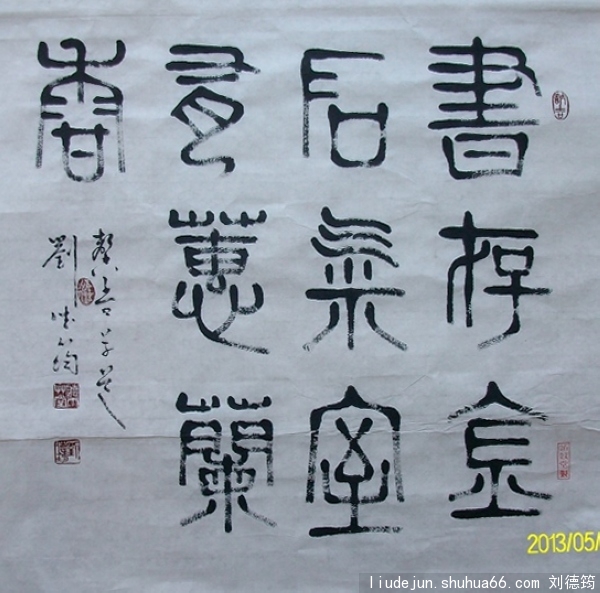 書存金
石氣室
有蕙蘭
香
劉德筠
2013/05/
liudejun.shuhua66.com 刘德筠